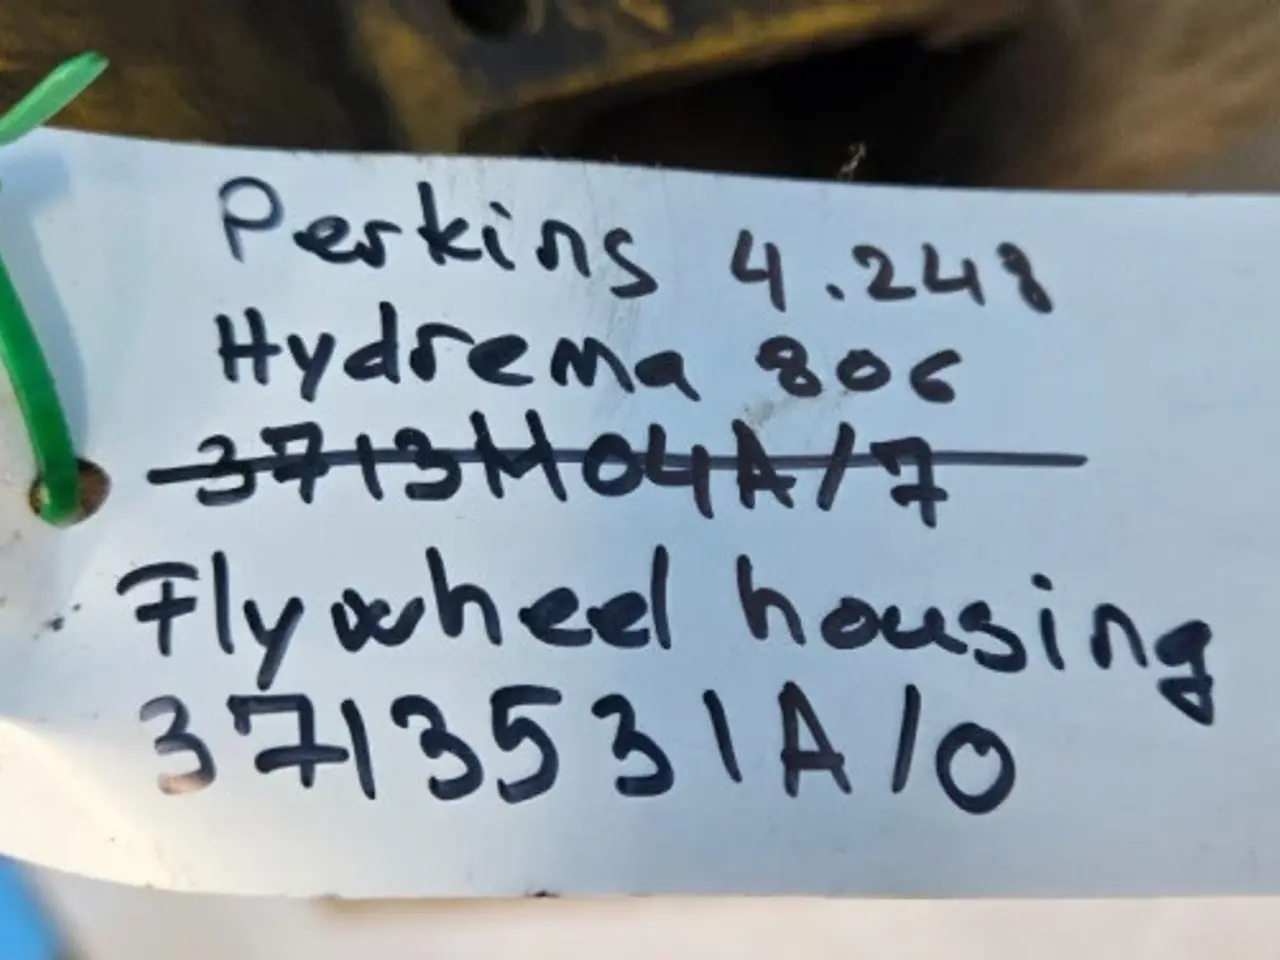 Perkins 4.248
Hydrema 806
3713H04A/7
Flywheel housing
3713531A/0